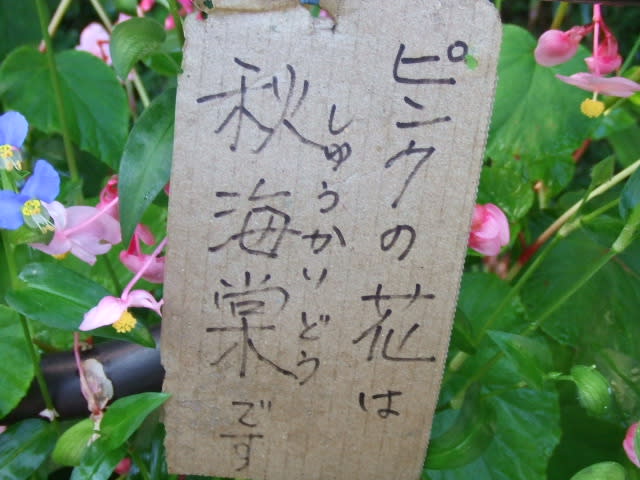 ピンクの花は
しゅうかいどう
秋海棠です